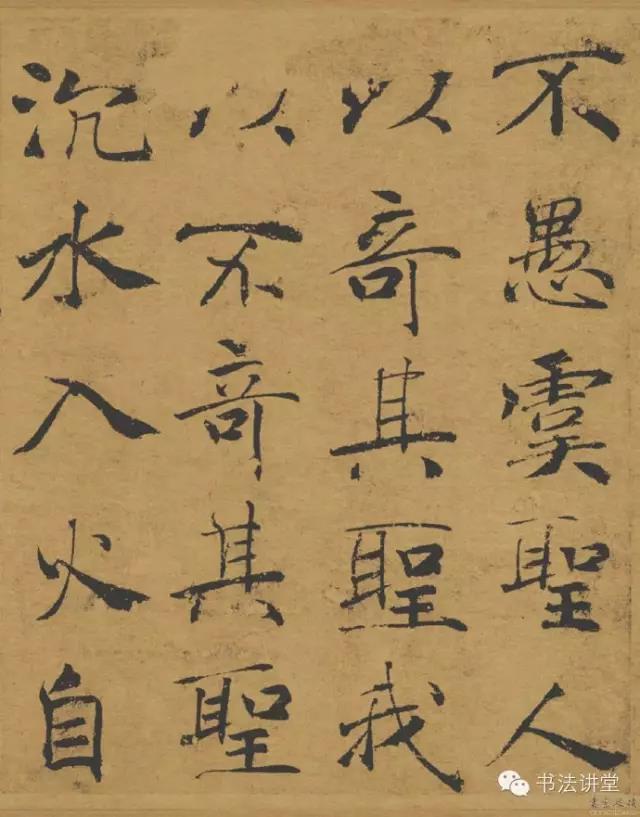 不愚虞聖人
以竒其聖我
以不竒其聖
沉水入火自
书法讲堂